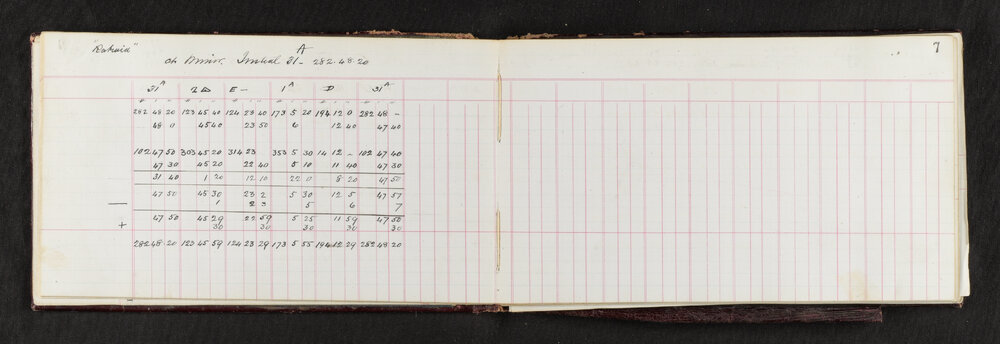 "Rakaia"
A
at Minr. Initial 31 - 282.48.20
7
31 A 2 D E - 1 A D 31 A
282 48 20 123 45 40 124 23 40 173 5 20 194 12 0 282 48 -
48 0 45 40 23 50 6 12 40 47 40
102 47 50 303 45 20 314 23 353 5 30 14 12 - 102 47 40
47 30 45 20 22 40 5 10 11 40 47 30
31 40 1 20 12 10 22 0 8 20 47 50
47 50 45 30 23 2 5 30 12 5 47 57
— 1 2 3 5 6 7
47 50 45 29 22 59 5 25 11 59 47 50
+ 30 30 30 30 30
282 48 20 123 45 59 124 23 29 173 5 55 194 12 29 282 48 20